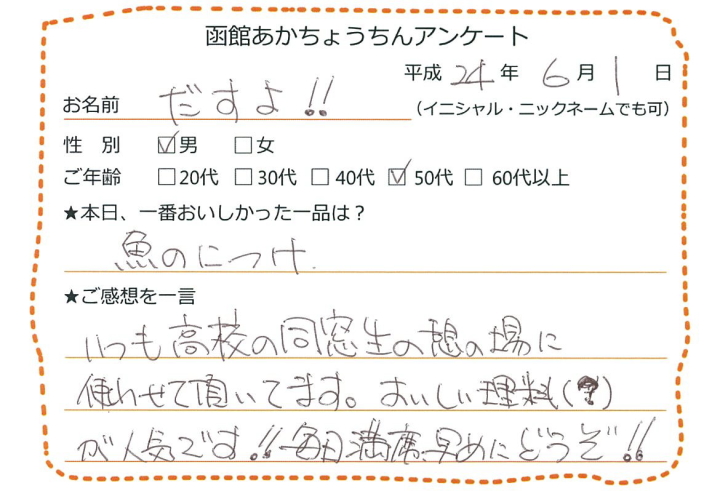 函館あかちょうちんアンケート
平成 24 年 6 月 1 日
お名前 だすよ!! （イニシャル・ニックネームでも可）
性 別 ☑男 □女
ご年齢 □20代 □30代 □40代 ☑50代 □60代以上
★本日、一番おいしかった一品は？
魚のにつけ.
★ご感想を一言
いつも高校の同窓生の憩の場に
使わせて頂いてます。おいしい理料(?)
が人気です!!毎日満席、早めにどうぞ!!